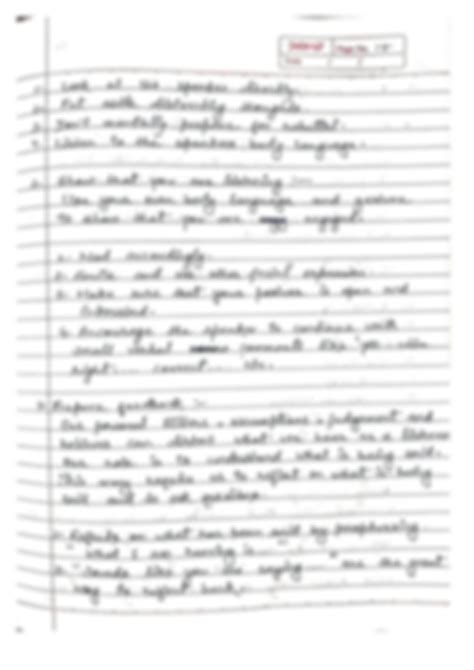 1. Look at the speaker directly.
2. Put aside distracting thoughts.
3. Don't mentally prepare for rebuttal.
4. Listen to the speaker's body language.
2. Show that you are listening :-
Use your own body language and gesture
to show that you are engaged.
1. Nod accordingly.
2. Smile and use other facial expression.
3. Make sure that your posture is open and
interested.
4. Encourage the speaker to continue with
small verbal comments like 'yes'
right ... correct ... etc.
3. Provide feedback :-
Our personal filters, assumptions, judgement and
believes can distort what we hear as a listener
our role is to understand what is being said.
This may require us to reflect on what is being
said and to ask questions.
1. Reflect on what has been said by paraphrasing.
"What I am hearing is
2. "Sounds like you are saying " are the great
way to reflect back.